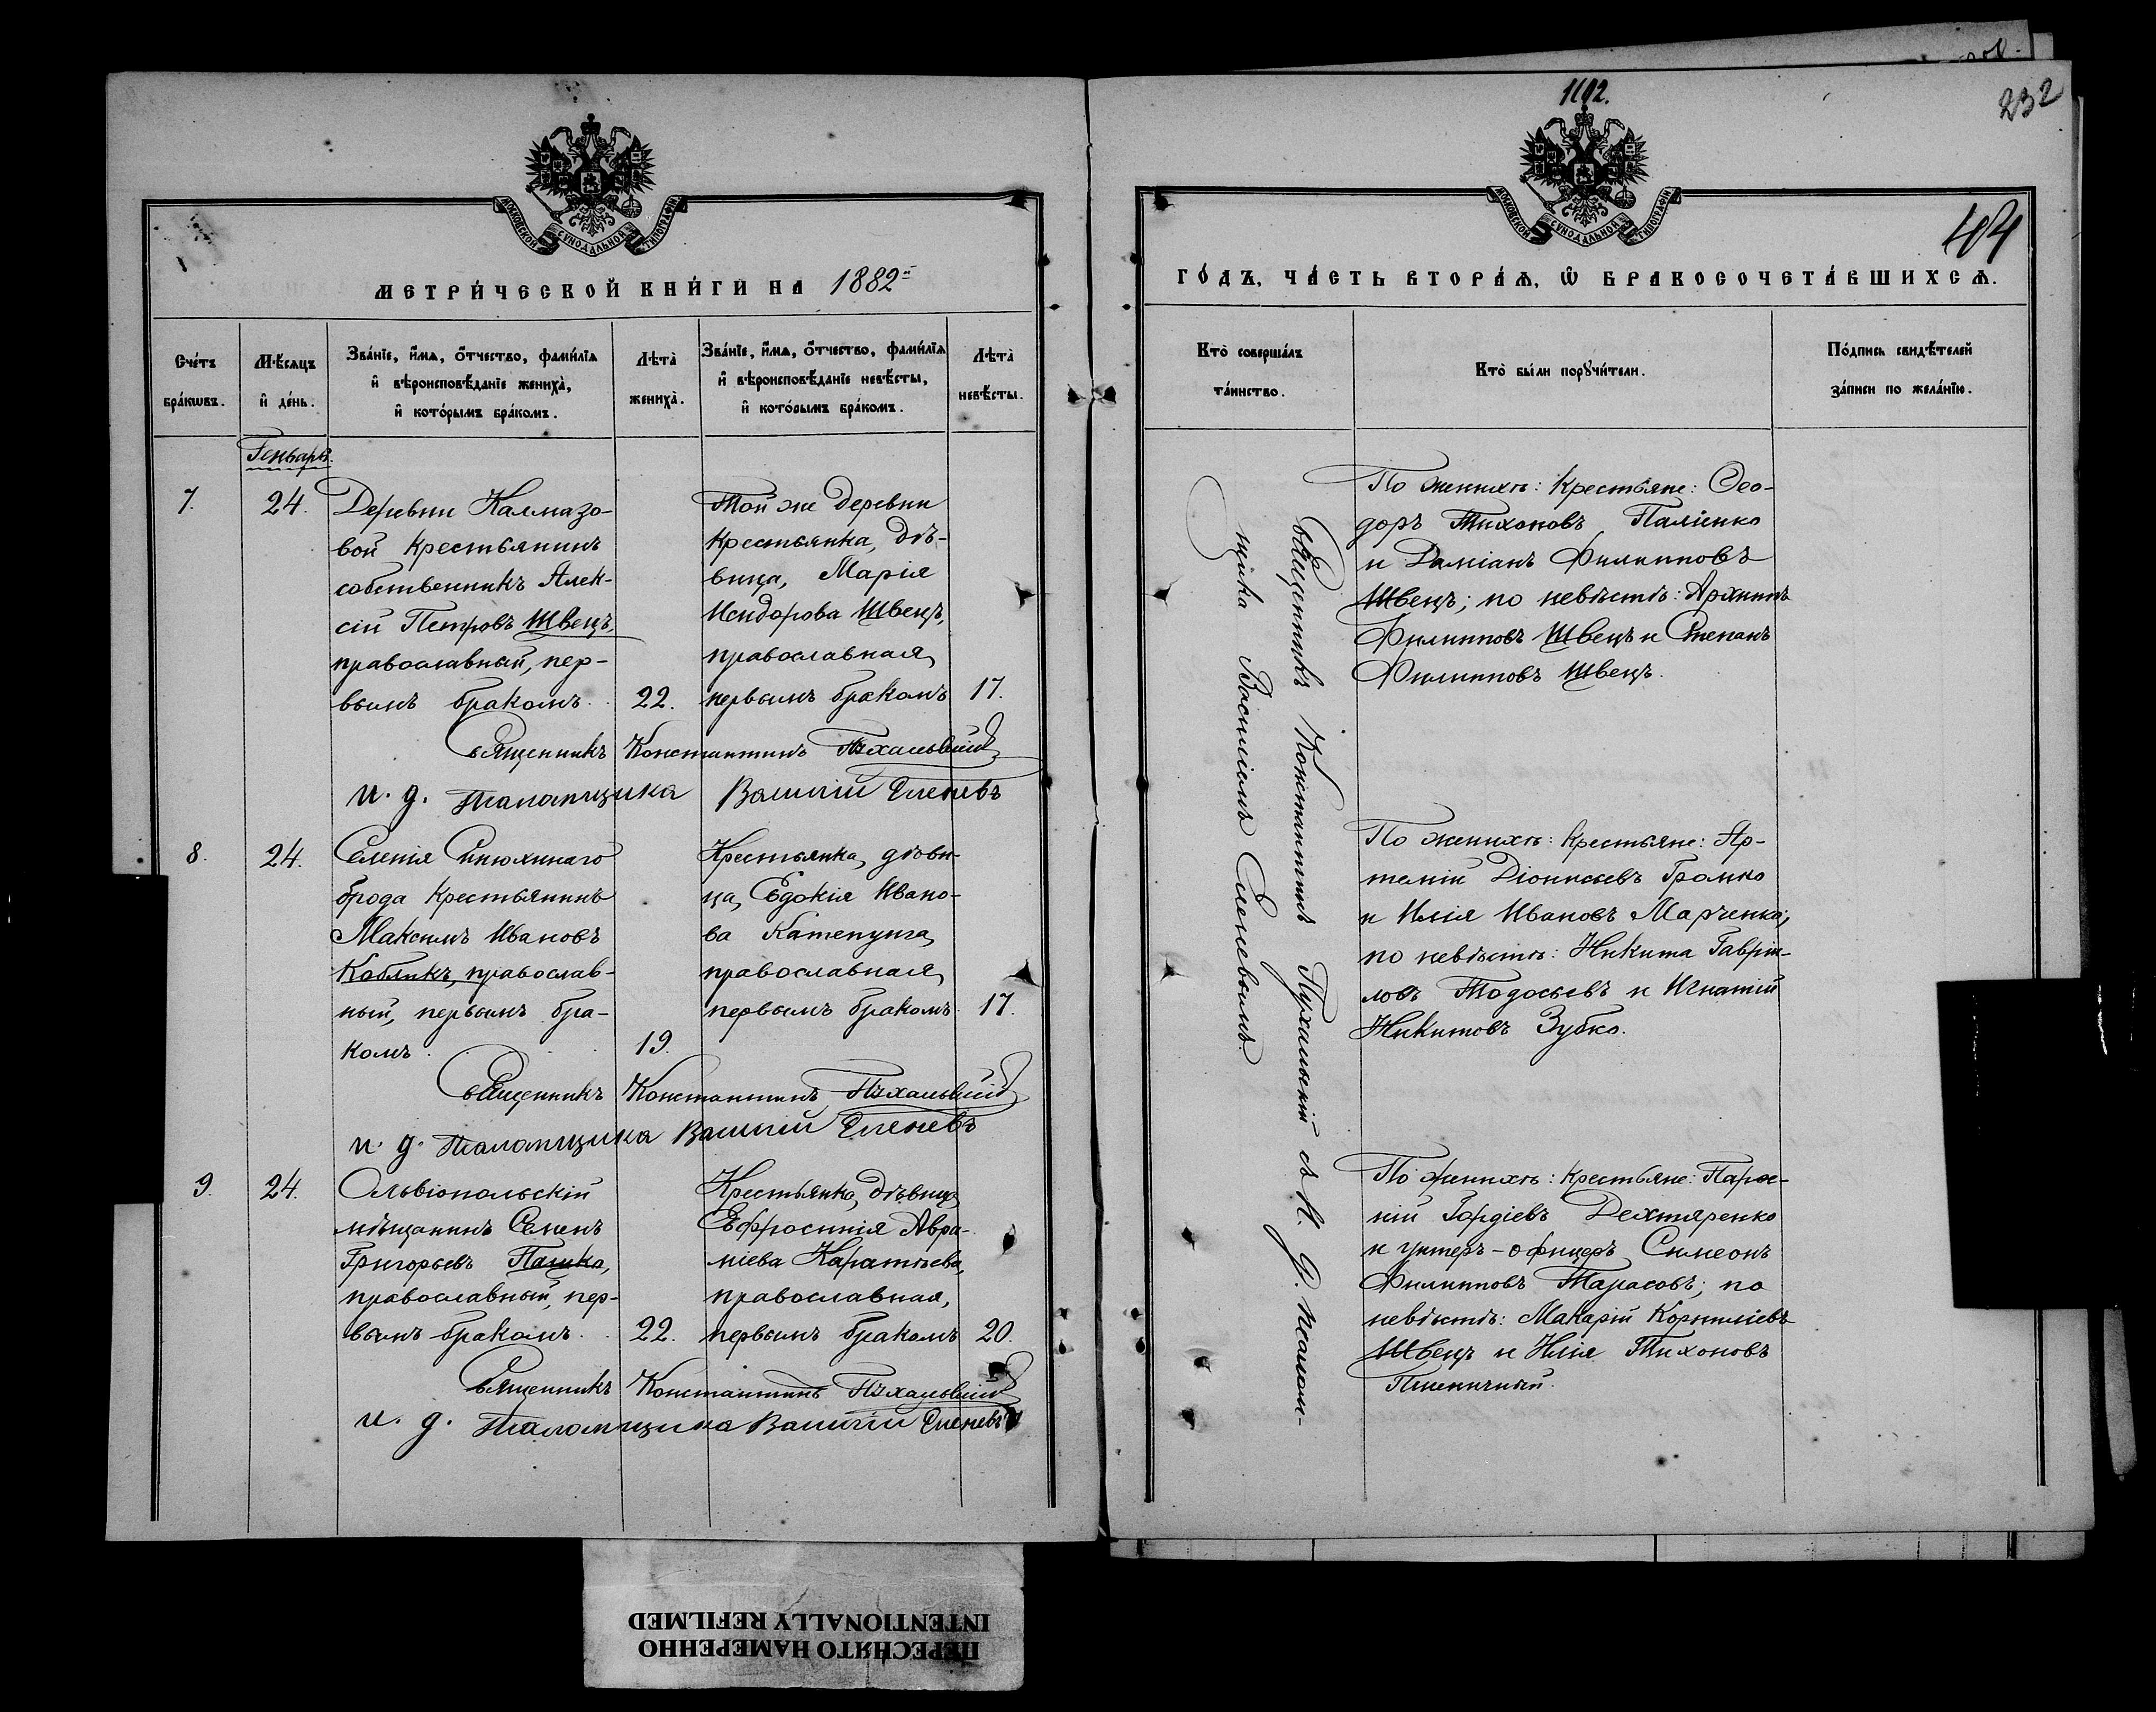 1102.
232
МОСКОВСКОЙ СѴНОДАЛЬНОЙ ТИПОГРАФІИ
МЕТРИ́ЧЕСКОЙ КНИ́ГИ НА 1882й
Сче́тъ бра́кѡвъ.
Мѣ́сяцъ и҆ де́нь.
Зва́нїе, и҆́мѧ, ѻ҆́тчество, фами́лїѧ и҆ вѣроисповѣ́данїе жениха̀, и҆ кото́рымъ бра́комъ.
Лѣта̀ жениха̀.
Зва́нїе, и҆́мѧ, ѻ҆́тчество, фами́лїѧ и҆ вѣроисповѣ́данїе невѣ́сты, и҆ кото́рымъ бра́комъ.
Лѣта̀ невѣ́сты.
Генварь.
7.
24.
Деревни Калмазо-
вой крестьянинъ
собственникъ Алек-
сій Петровъ Швецъ,
православный, пер-
вымъ бракомъ.
22.
Той же деревни
крестьянка, дѣ-
вица, Марія
Исидорова Швецъ,
православная,
первымъ бракомъ
17.
Священникъ Константинъ Пухальскій
и. д. псаломщика Василій Еленевъ
8.
24.
Селенія Синюхинаго
брода крестьянинъ
Максимъ Ивановъ
Кобликъ, православ-
ный, первымъ бра-
комъ.
19.
Крестьянка, дѣви-
ца, Евдокія Ивано-
ва Катепунга,
православная,
первымъ бракомъ.
17.
Священникъ Константинъ Пухальскій
и. д. псаломщика Василій Еленевъ
9.
24.
Ольвіопольскій
мѣщанинъ Семенъ
Григорьевъ Пашко,
православный, пер-
вымъ бракомъ.
22.
Крестьянка, дѣвица,
Евфросинія Авра-
міева Каратѣева,
православная,
первымъ бракомъ
20.
Священникъ Константинъ Пухальскій
и. д. псаломщика Василій Еленевъ
МОСКОВСКОЙ СѴНОДАЛЬНОЙ ТИПОГРАФІИ
ГО́ДЪ, ЧА́СТЬ ВТОРА́Ѧ, Ѽ БРАКОСОЧЕТА́ВШИХСѦ.
Кто̀ соверша́лъ та́инство.
Кто̀ бы́ли порꙋчи́тели.
По́дпись свидѣ́телей за́писи по жела́нїю.
Священникъ Константинъ Пухальскій съ и. д. псалом-
щика Василіемъ Еленевымъ.
По женихѣ: крестьяне: Ѳео-
доръ Тихоновъ Паліенко
и Даміанъ Филипповъ
Швецъ; по невѣстѣ: Архипъ
Филипповъ Швецъ и Степанъ
Филипповъ Швецъ.
По женихѣ: крестьяне: Ар-
темій Діонисьевъ Громко
и Илія Ивановъ Марченко;
по невѣстѣ: Никита Гаврі-
ловъ Тодосьевъ и Игнатій
Никитовъ Зубко.
По женихѣ: крестьяне: Парѳе-
ній Гордіевъ Дехтяренко
и унтеръ-офицеръ Симеонъ
Филипповъ Тарасовъ; по
невѣстѣ: Макарій Корниліевъ
Швецъ и Илія Тихоновъ
Пшеничный.
ПЕРЕСНЯТО НАМЕРЕННО
INTENTIONALLY REFILMED